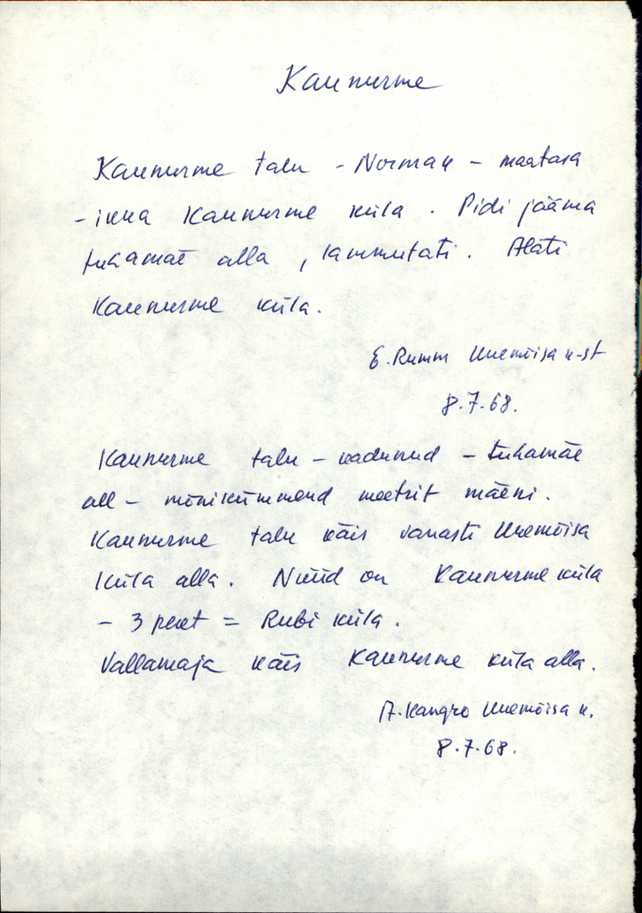 Kaunurme
Kaunurme talu - Norman - maatasa
- ikka Kaunurme küla. Pidi jääma
tuhamäe alla, lammutati. Alati
Kaunurme küla.
E. Rumm Uuemõisa k-st
8.7.68.
Kaunurme talu - kadunud - tuhamäe
all - mõnikümmend meetrit mäeni.
Kaunurme talu käis vanasti Uuemõisa
küla alla. Nüüd on Kaunurme küla
- 3 peret = Rubi küla.
Vallamaja käis Kaunurme küla alla.
A. Kangro Uuemõisa k.
8.7.68.